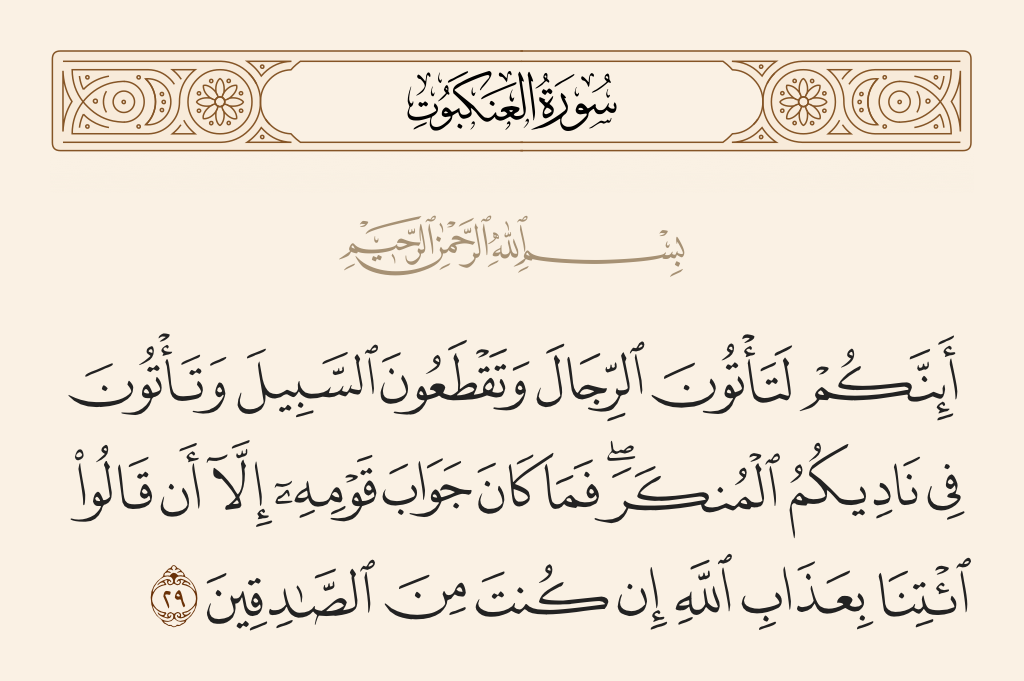 سُورَةُ العَنكَبُوتِ
بِسْمِ ٱللَّهِ ٱلرَّحْمَٰنِ ٱلرَّحِيمِ
أَئِنَّكُمْ لَتَأْتُونَ ٱلرِّجَالَ وَتَقْطَعُونَ ٱلسَّبِيلَ وَتَأْتُونَ
فِى نَادِيكُمُ ٱلْمُنكَرَ ۖ فَمَا كَانَ جَوَابَ قَوْمِهِۦٓ إِلَّآ أَن قَالُوا۟
ٱئْتِنَا بِعَذَابِ ٱللَّهِ إِن كُنتَ مِنَ ٱلصَّـٰدِقِينَ ٢٩